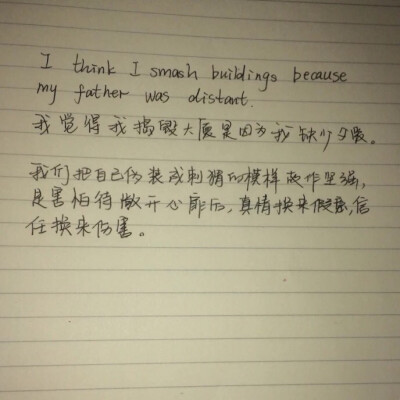 I think I smash buildings because
my father was distant.
我觉得我捣毁大厦是因为我缺少父爱。
我们把自己伪装成刺猬的模样故作坚强,
是害怕待敞开心扉后,真情换来假意,信
任换来伤害。